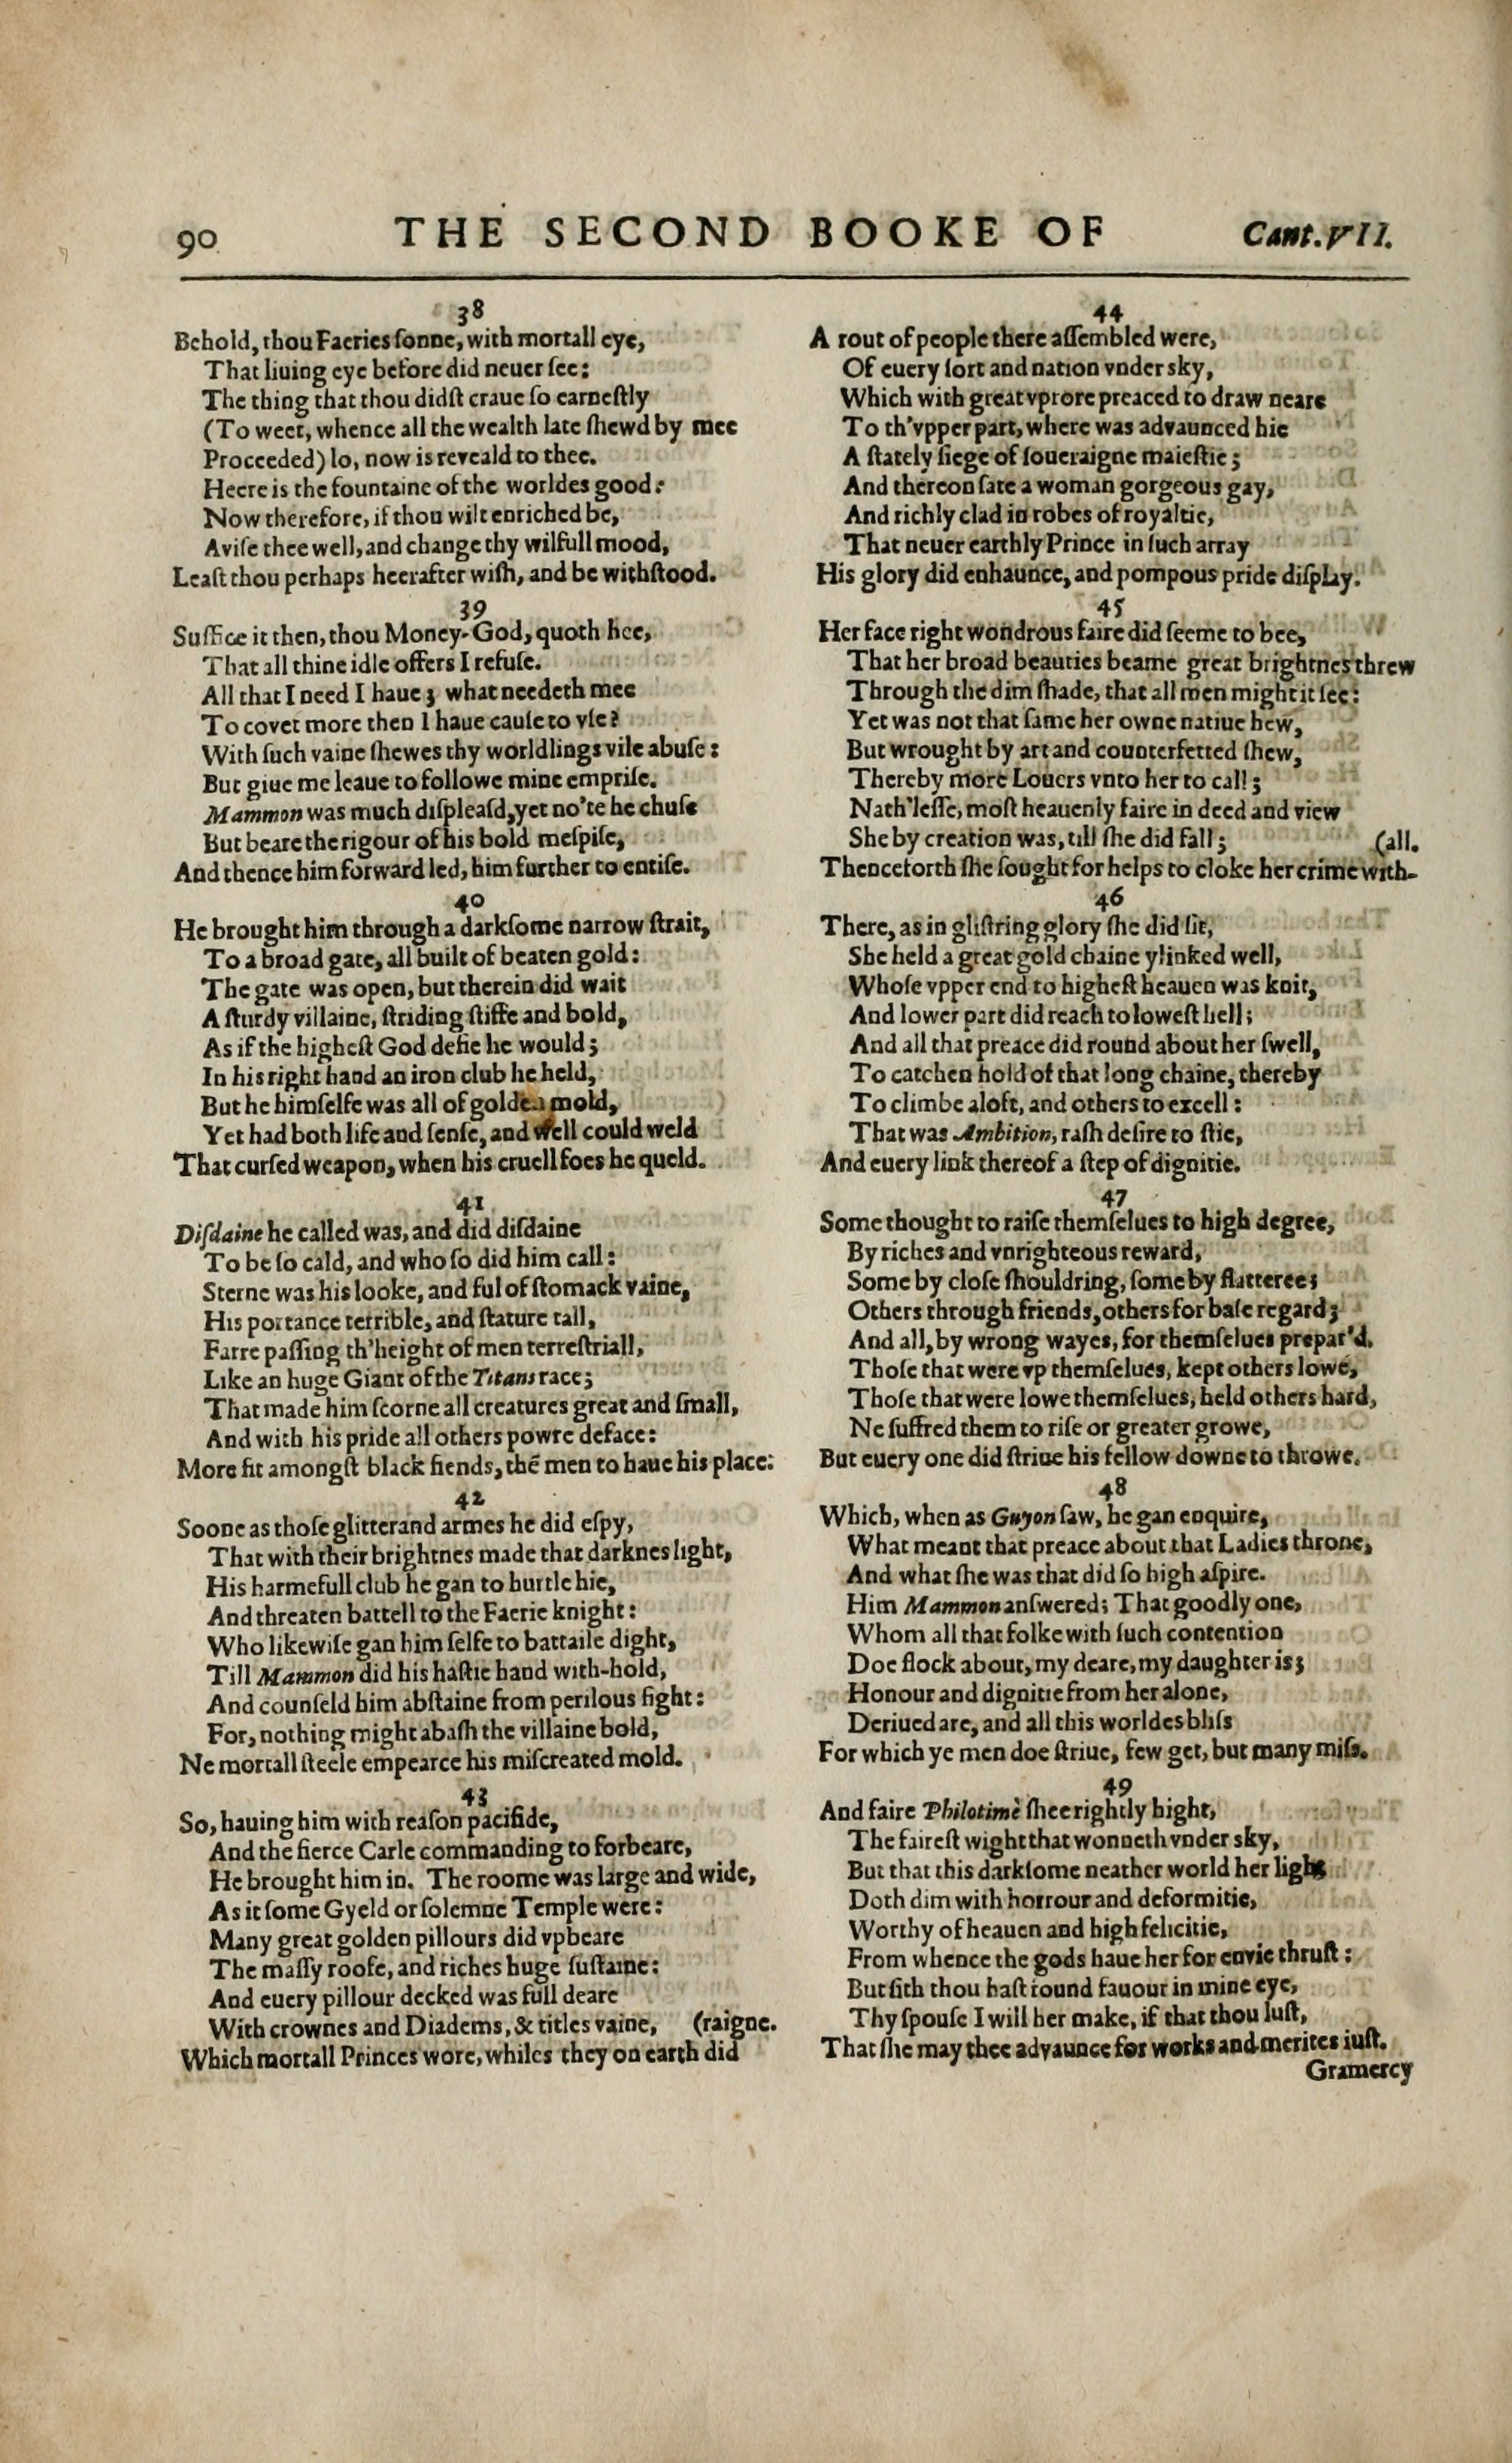 90 THE SECOND BOOKE OF Cant.VII.
38
Behold, thou Faeries ſonne, with mortall eye,
That liuing eye before did neuer ſee:
The thing that thou didſt craue ſo earneſtly
(To weet, whence all the wealth late ſhewd by mee
Proceeded) lo, now is reveald to thee.
Heere is the fountaine of the worldes good:
Now therefore, if thou wilt enriched be,
Aviſe thee well, and change thy wilfull mood,
Leaſt thou perhaps heerafter wiſh, and be withſtood.
39
Suffice it then, thou Money-God, quoth hee,
That all thine idle offers I refuſe.
All that I need I haue; what needeth mee
To covet more then I haue cauſe to vſe?
With ſuch vaine ſhewes thy worldlings vile abuſe:
But giue me leaue to followe mine empriſe.
Mammon was much diſpleaſd, yet no'te he chuſe
But beare the rigour of his bold meſpiſe,
And thence him forward led, him further to entiſe.
40
He brought him through a darkſome narrow ſtrait,
To a broad gate, all built of beaten gold:
The gate was open, but therein did wait
A ſturdy villaine, ſtriding ſtiffe and bold,
As if the higheſt God defie he would;
In his right hand an iron club he held,
But he himſelfe was all of golden mold,
Yet had both life and ſenſe, and well could weld
That curſed weapon, when his cruell foes he queld.
41
Diſdaine he called was, and did diſdaine
To be ſo cald, and who ſo did him call:
Sterne was his looke, and ful of ſtomack vaine,
His portance terrible, and ſtature tall,
Farre paſſing th'height of men terreſtriall,
Like an huge Giant of the Titans race;
That made him ſcorne all creatures great and ſmall,
And with his pride all others powre deface:
More fit amongſt black fiends, thē men to haue his place:
42
Soone as thoſe glitterand armes he did eſpy,
That with their brightnes made that darknes light,
His harmefull club he gan to hurtle hie,
And threaten battell to the Faerie knight:
Who likewiſe gan himſelfe to battaile dight,
Till Mammon did his haſtie hand with-hold,
And counſeld him abſtaine from perilous fight:
For, nothing might abaſh the villaine bold,
Ne mortall ſteele empearce his miſcreated mold.
43
So, hauing him with reaſon pacifide,
And the fierce Carle commanding to forbeare,
He brought him in. The roome was large and wide,
As it ſome Gyeld or ſolemne Temple were:
Many great golden pillours did vpbeare
The maſſy roofe, and riches huge ſuſtaine:
And euery pillour decked was full deare
With crownes and Diadems, & titles vaine, (raigne.
Which mortall Princes wore, whiles they on earth did
44
A rout of people there aſſembled were,
Of euery ſort and nation vnder sky,
Which with great vprore preaced to draw neare
To th'vpper part, where was advaunced hie
A ſtately ſiege of ſoueraigne maieſtie;
And thereon ſate a woman gorgeous gay,
And richly clad in robes of royaltie,
That neuer earthly Prince in ſuch array
His glory did enhaunce, and pompous pride diſplay.
45
Her face right wondrous faire did ſeeme to bee,
That her broad beauties beame great brightnes threw
Through the dim ſhade, that all men might it ſee:
Yet was not that ſame her owne natiue hew,
But wrought by art and counterfetted ſhew,
Thereby more Louers vnto her to call;
Nath'leſſe, moſt heauenly faire in deed and view
She by creation was, till ſhe did fall; (all.
Thenceforth ſhe ſought for helps to cloke her crime with-
46
There, as in gliſtring glory ſhe did ſit,
She held a great gold chaine ylinked well,
Whoſe vpper end to higheſt heauen was knit,
And lower part did reach to loweſt hell;
And all that preace did round about her ſwell,
To catchen hold of that long chaine, thereby
To climbe aloft, and others to excell:
That was Ambition, raſh deſire to ſtie,
And euery link thereof a ſtep of dignitie.
47
Some thought to raiſe themſelues to high degree,
By riches and vnrighteous reward,
Some by cloſe ſhouldring, ſome by flatteree;
Others through friends, others for baſe regard;
And all, by wrong wayes, for themſelues prepar'd.
Thoſe that were vp themſelues, kept others lowe,
Thoſe that were lowe themſelues, held others hard,
Ne ſuffred them to riſe or greater growe,
But euery one did ſtriue his fellow downe to throwe.
48
Which, when as Guyon ſaw, he gan enquire,
What meant that preace about that Ladies throne,
And what ſhe was that did ſo high aſpire.
Him Mammon anſwered; That goodly one,
Whom all that folke with ſuch contention
Doe flock about, my deare, my daughter is;
Honour and dignitie from her alone,
Deriued are, and all this worldes bliſs
For which ye men doe ſtriue, few get, but many miſs.
49
And faire Philotimè ſhee rightly hight,
The faireſt wight that wonneth vnder sky,
But that this darkſome neather world her light
Doth dim with horrour and deformitie,
Worthy of heauen and high felicitie,
From whence the gods haue her for envie thruſt:
But ſith thou haſt found fauour in mine eye,
Thy ſpouſe I will her make, if that thou luſt,
That ſhe may thee advaunce for works and merites iuſt.
Gramercy